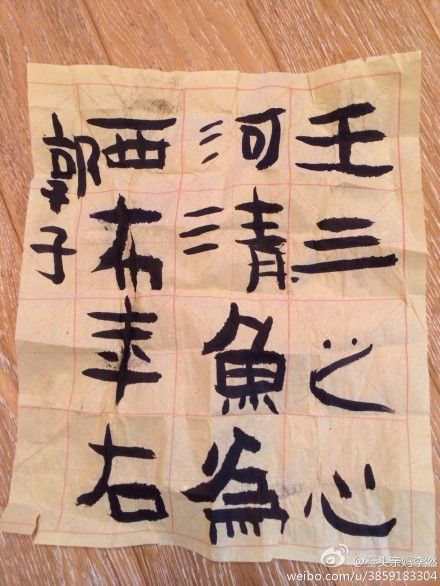 壬三之心
河清魚為
西布年右
子
weibo.com/u/3859183304